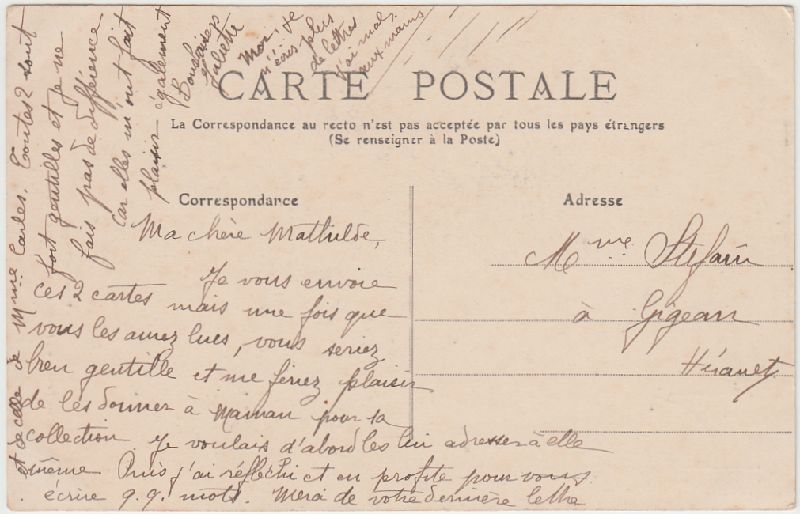 CARTE POSTALE
La Correspondance au recto n'est pas acceptée par tous les pays étrangers
(Se renseigner à la Poste)
Correspondance
Adresse
Ma chère Mathilde,
Je vous envoie
ces 2 cartes mais une fois que
vous les aurez lues, vous seriez
bien gentille et me feriez plaisir
de les donner à Maman pour sa
collection. Je voulais d'abord les lui adresser à elle
même Puis j'ai réfléchi et en profite pour vous
écrire q.q. mots. Merci de votre dernière lettre
et de celle de Mme Carles. Toutes 2 sont
fort gentilles et je ne
fais pas de différence
car elles m'ont fait
plaisir également
Bons baisers
Juliette
Moi, je
n'écris plus
de lettres
j'ai mal
aux mains
Mme Stefani
à Gigean
Hérault